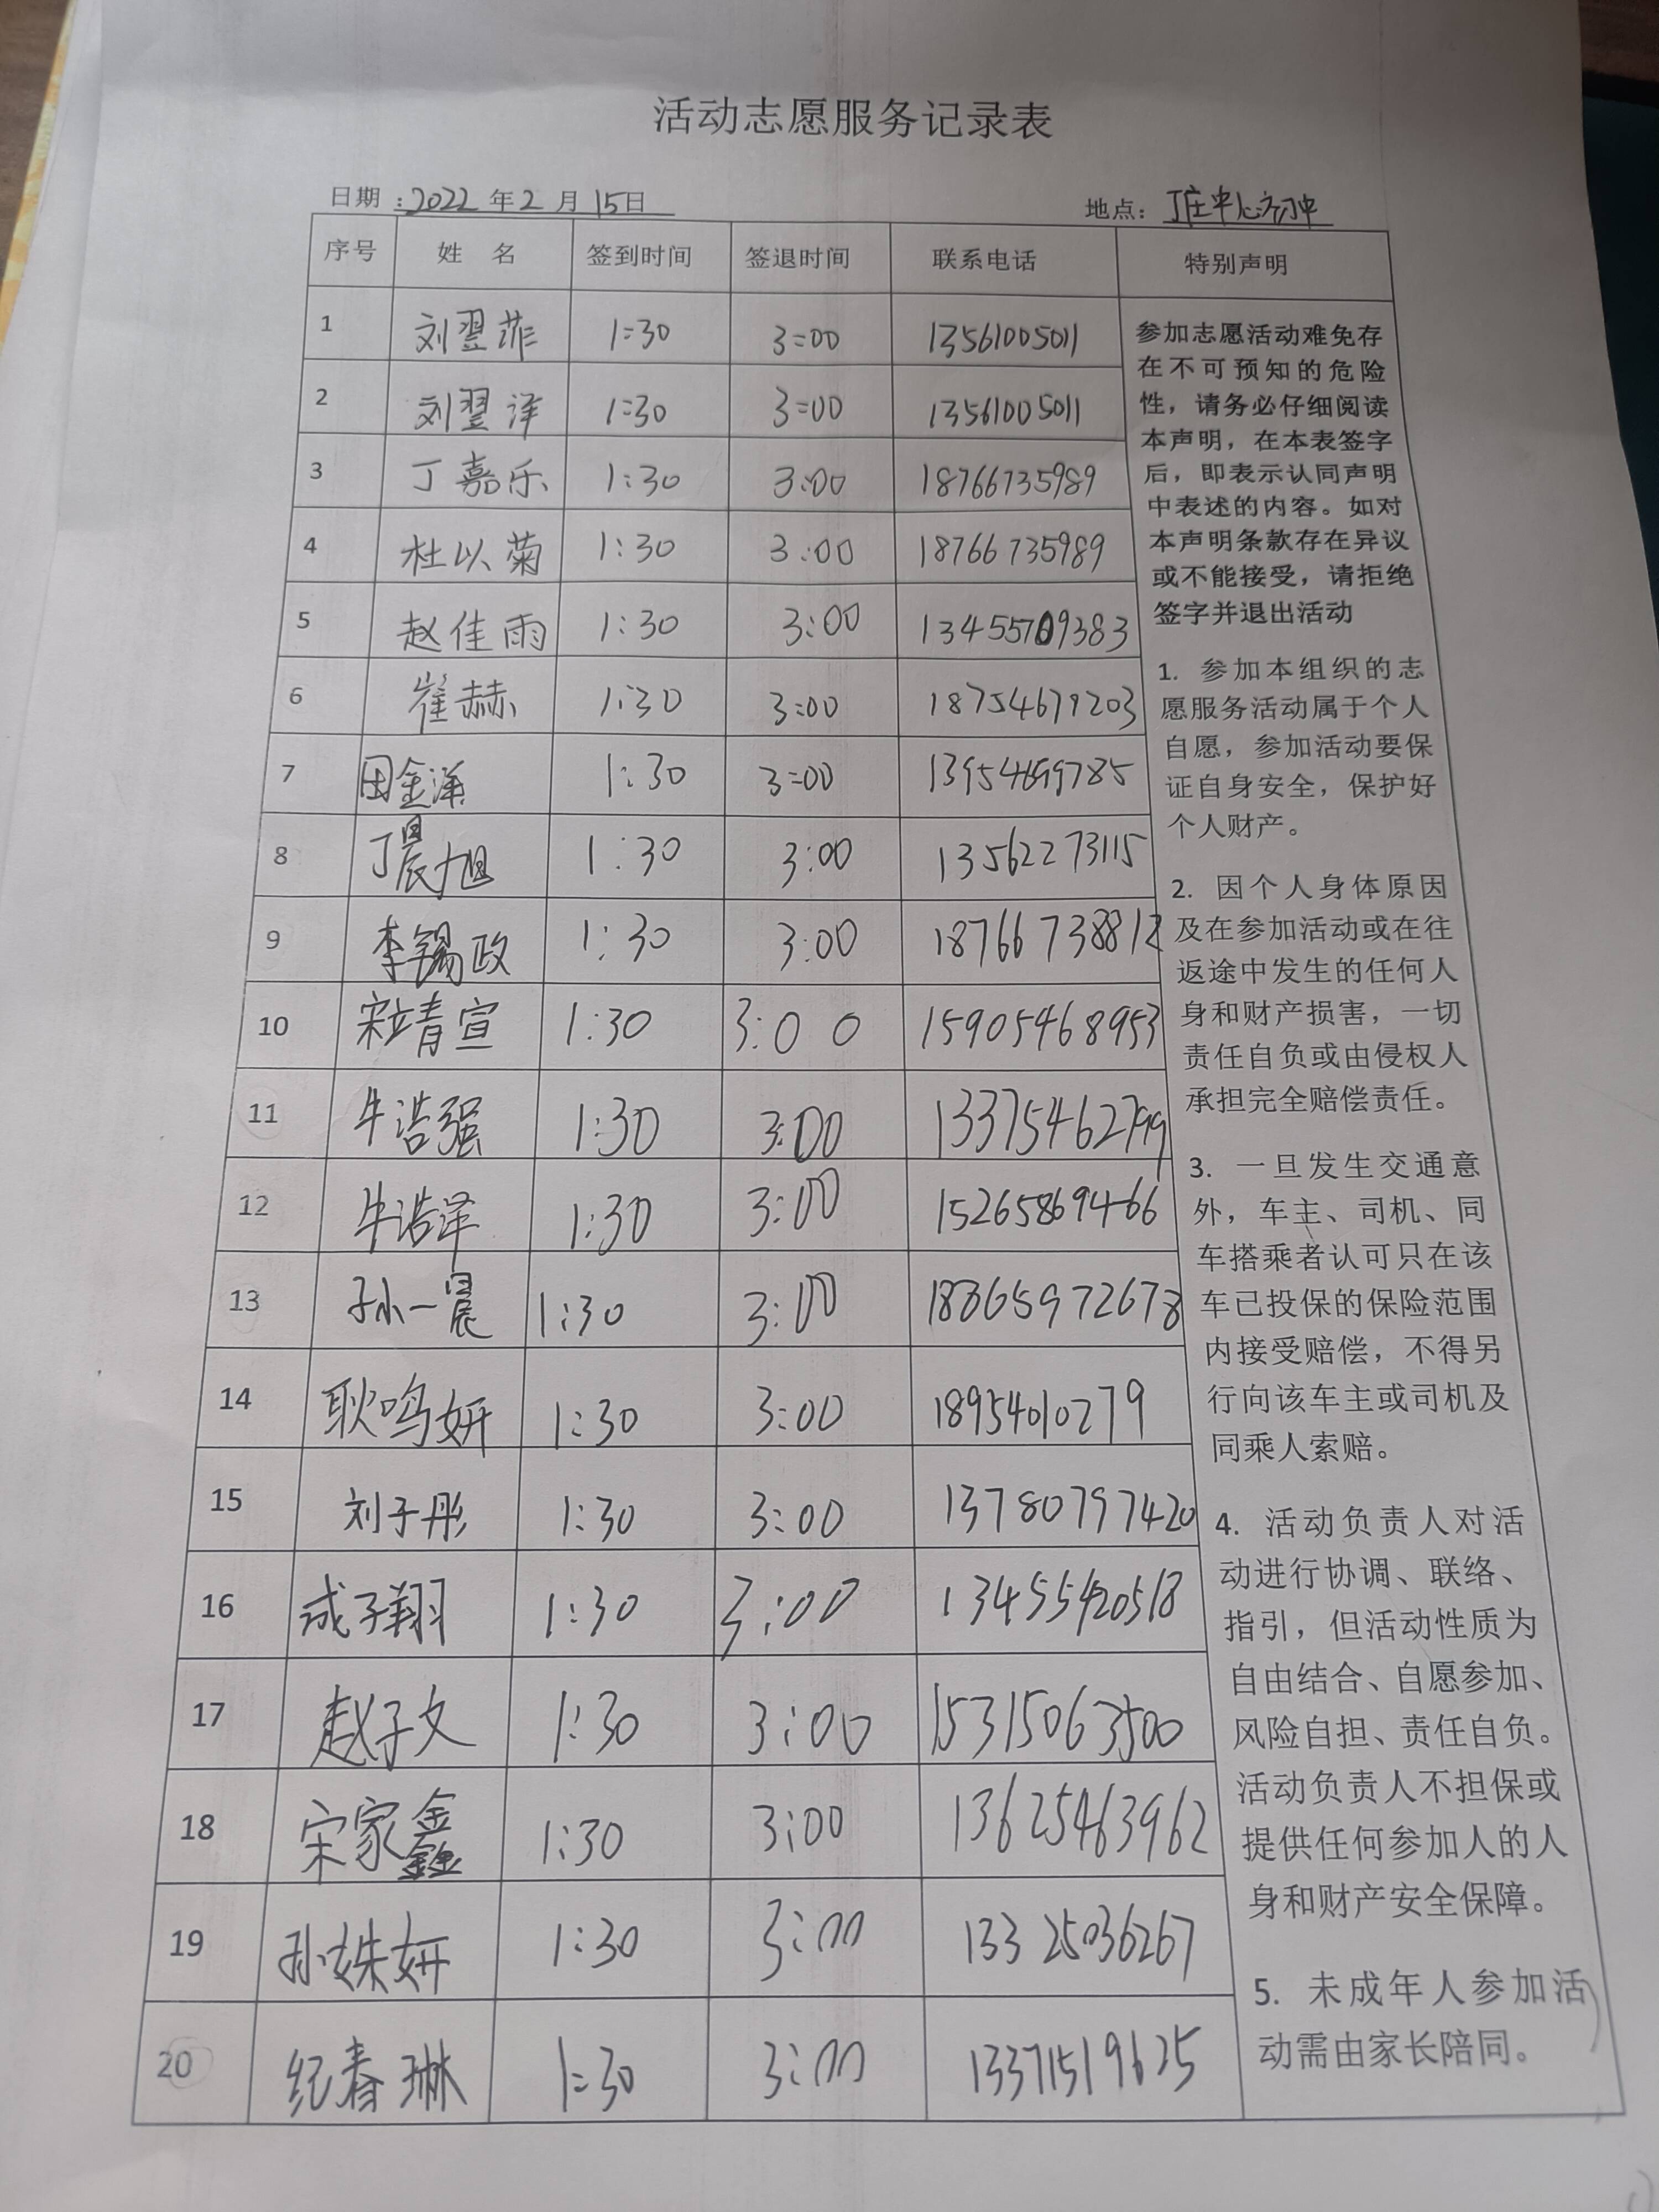 活动志愿服务记录表
日期：2022 年 2 月 15日 地点：丁庄中心初中
序号 姓 名 签到时间 签退时间 联系电话 特别声明
1 刘翌菲 1:30 3:00 13561005011
2 刘翌洋 1:30 3:00 13561005011
3 丁嘉乐 1:30 3:00 18766735989
4 杜以菊 1:30 3:00 18766735989
5 赵佳雨 1:30 3:00 13455709383
6 崔赫 1:30 3:00 18754679203
7 田金洋 1:30 3:00
8 丁晨旭 1:30 3:00 13562273115
9 李锡政 1:30 3:00 18766738812
10 宋靖宣 1:30 3:00 15905468953
11 牛浩强 1:30 3:00 13375462799
12 牛浩泽 1:30 3:00 15265869466
13 孙一晨 1:30 3:00 18865972678
14 耿鸣妍 1:30 3:00 18954010279
15 刘子彤 1:30 3:00 13780797420
16 成子翔 1:30 3:00
17 赵子文 1:30 3:00 15315063500
18 宋家鑫 1:30 3:00 13625463962
19 孙姝妍 1:30 3:00 13325036267
20 纪春琳 1:30 3:00 13371519625
参加志愿活动难免存
在不可预知的危险
性，请务必仔细阅读
本声明，在本表签字
后，即表示认同声明
中表述的内容。如对
本声明条款存在异议
或不能接受，请拒绝
签字并退出活动
1. 参加本组织的志
愿服务活动属于个人
自愿，参加活动要保
证自身安全，保护好
个人财产。
2. 因个人身体原因
及在参加活动或在往
返途中发生的任何人
身和财产损害，一切
责任自负或由侵权人
承担完全赔偿责任。
3. 一旦发生交通意
外，车主、司机、同
车搭乘者认可只在该
车已投保的保险范围
内接受赔偿，不得另
行向该车主或司机及
同乘人索赔。
4. 活动负责人对活
动进行协调、联络、
指引，但活动性质为
自由结合、自愿参加、
风险自担、责任自负。
活动负责人不担保或
提供任何参加人的人
身和财产安全保障。
5. 未成年人参加活
动需由家长陪同。